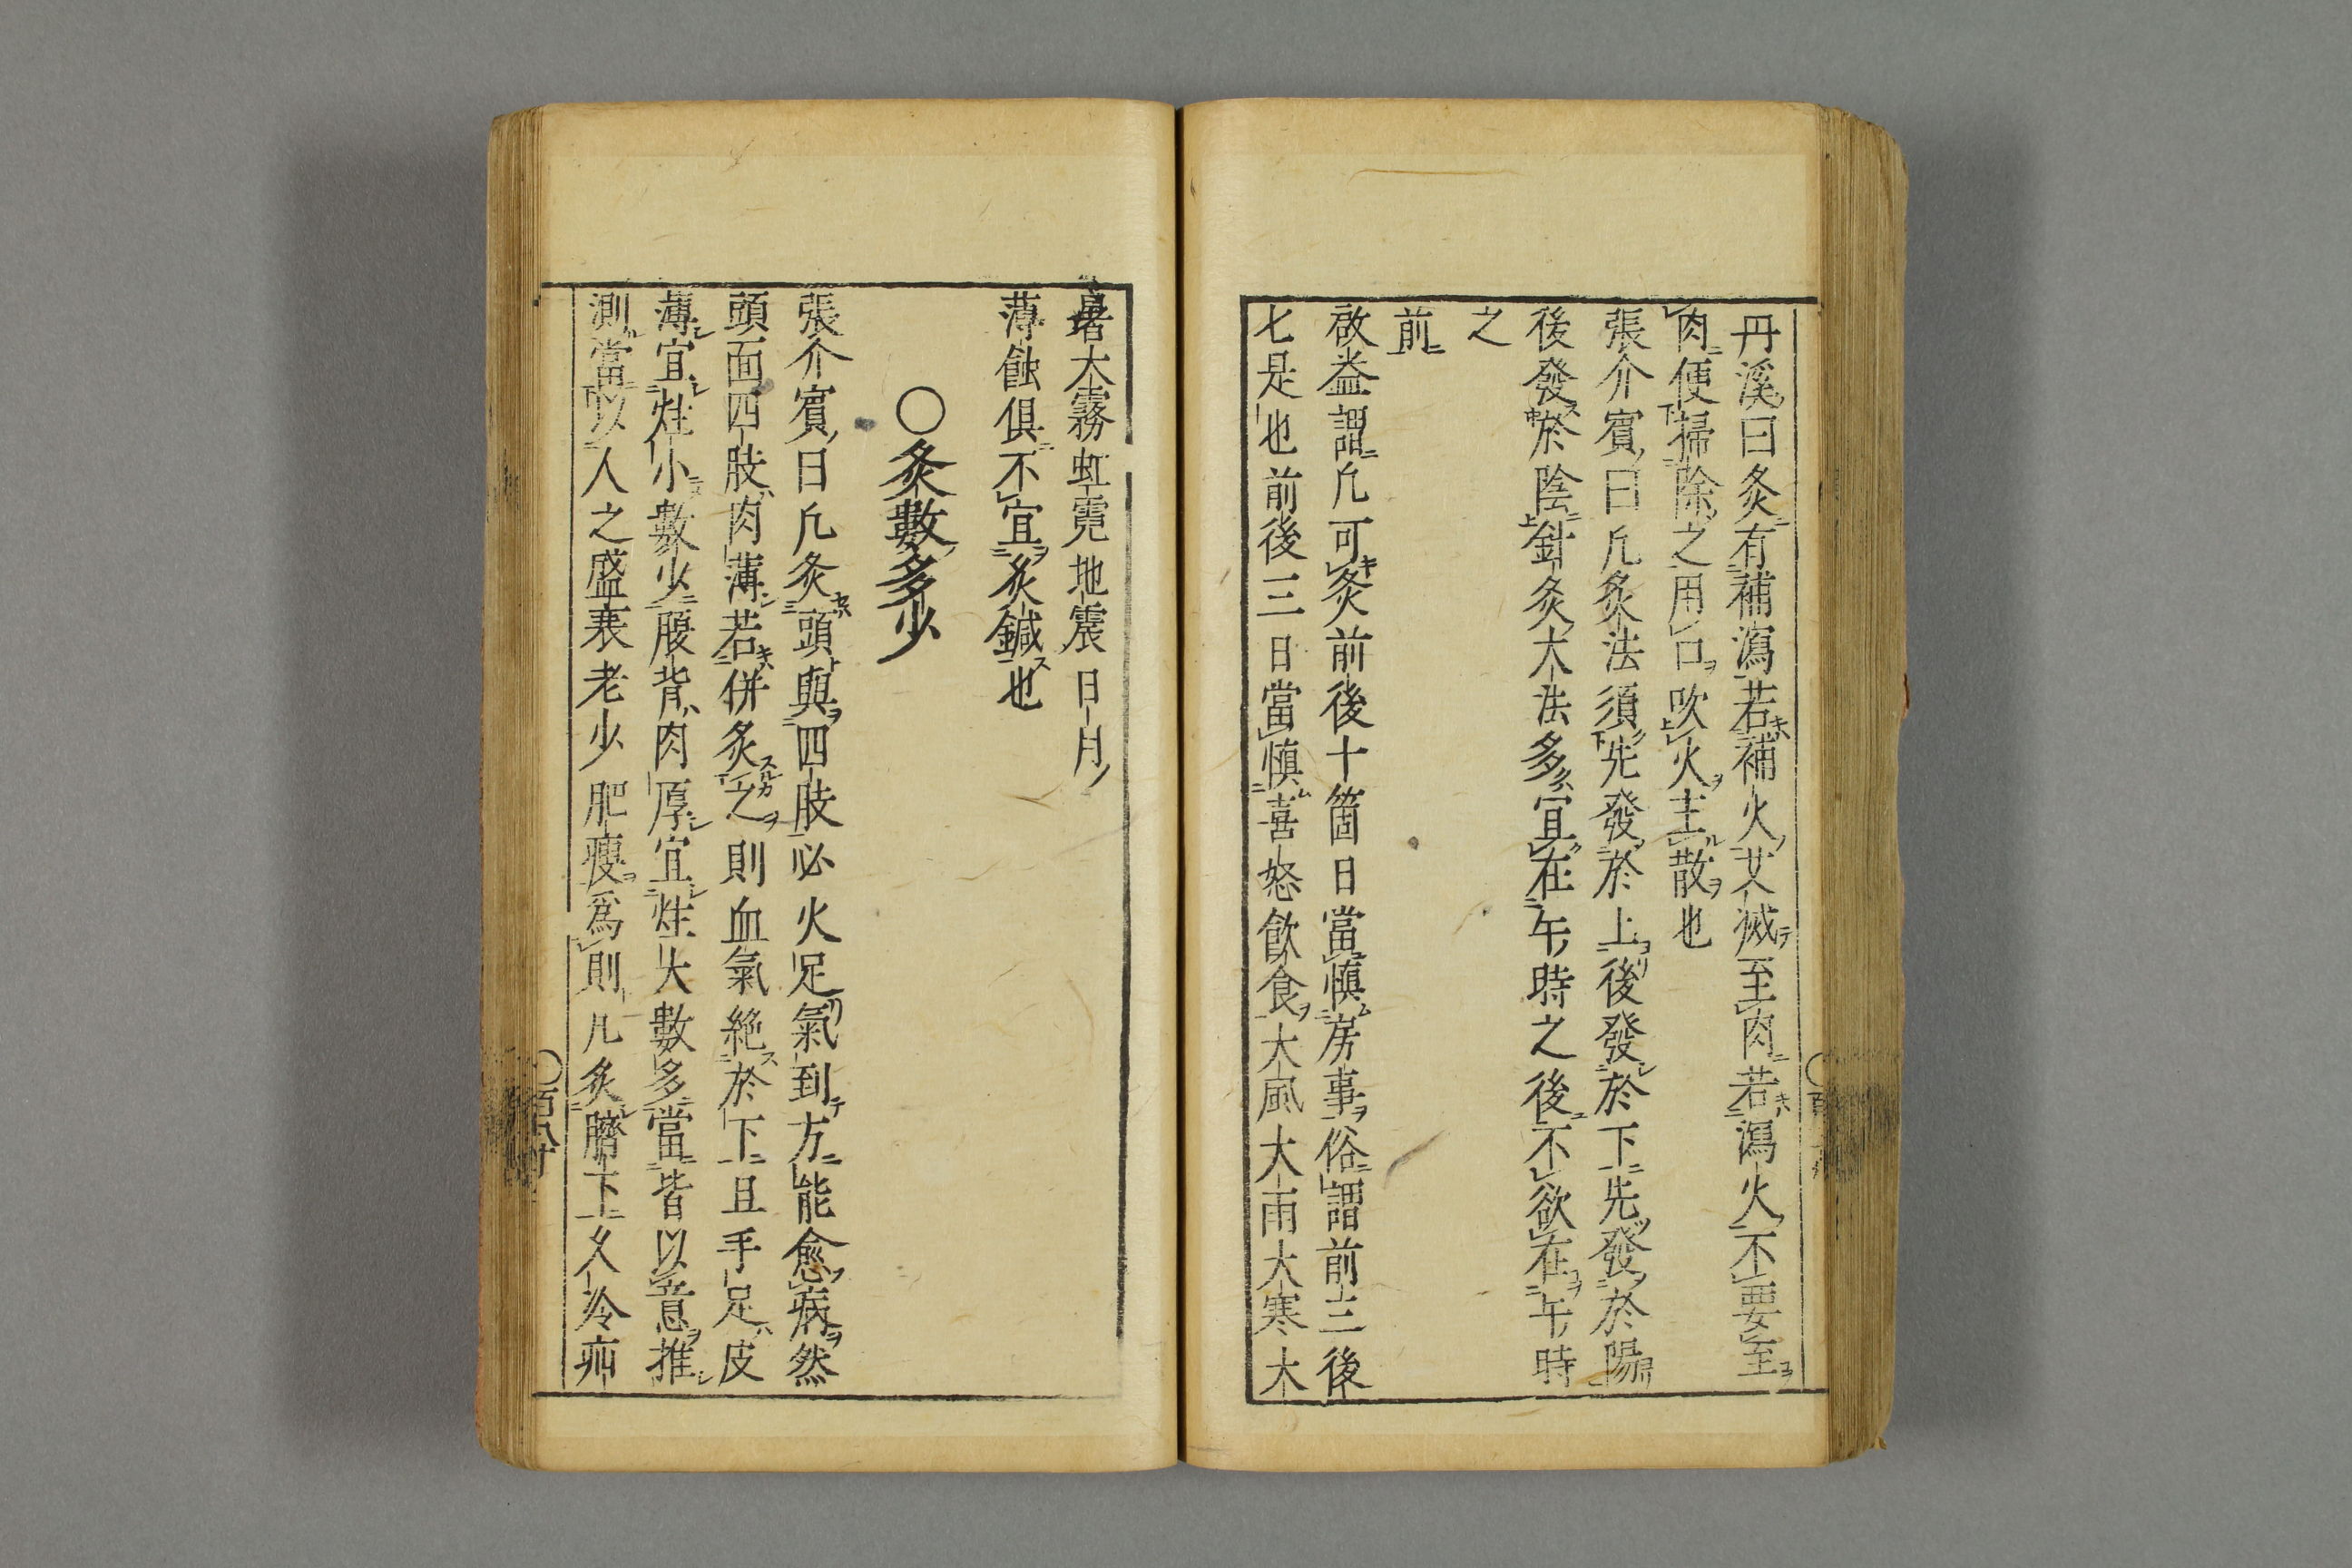 丹溪曰灸有補瀉若補火艾滅至肉若瀉火不要至
肉便掃除之用口吹火主散也
張介賓曰凡灸法須先發於上後發於下先發於陽
後發於陰針灸大法多宜在午時之後不欲在午時
之
前
啟益謂凡可灸前後十箇日當慎房事俗謂前三後
七是也前後三日當慎喜怒飲食大風大雨大寒大
暑大霧虹霓地震日月
薄蝕俱不宜灸鍼也
〇灸數多少
張介賓曰凡灸頭與四肢必火足氣到方能愈病然
頭面四肢肉薄若併灸之則血氣絶於下且手足皮
薄宜炷小數少腹背肉厚宜炷大數多當皆以意推
測當以人之盛衰老少肥瘦爲則凡灸臍下久冷疝